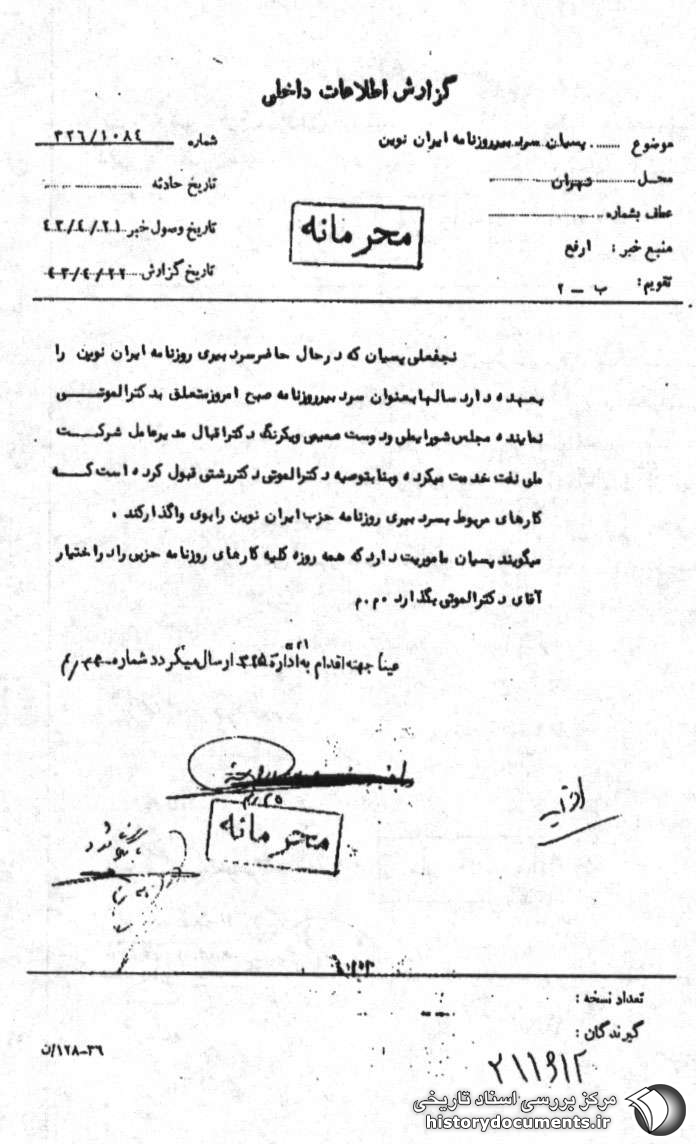 گزارش اطلاعات داخلی
موضوع ........ پسیان سردبیر روزنامه ایران نوین
شماره ۳۲۶/۱۰۸۴
محل ........ تهران
تاریخ حادثه
عطف بشماره
تاریخ وصول خبر ۴۳/۴/۲۱
منبع خبر : ارفع
تاریخ گزارش ۴۳/۴/۲۲
تقویم : ب - ۲
محرمانه
نجفعلی پسیان که در حال حاضر سردبیری روزنامه ایران نوین را
بعهده دارد سالها بعنوان سردبیر روزنامه صبح امروز متعلق بدکتر الموتی
نماینده مجلس شورایملی و دوست صمیمی و یکرنگ دکتر اقبال مدیرعامل شرکت
ملی نفت خدمت میکرده و بنا بتوصیه دکتر الموتی دکتر رشتی قبول کرده است که
کارهای مربوط بسردبیری روزنامه حزب ایران نوین را بوی واگذار کند .
میگویند پسیان ماموریت دارد که همه روزه کلیه کارهای روزنامه حزبی را در اختیار
آقای دکتر الموتی بگذارد م.م.
عیناً جهت اقدام به اداره ۳۲۵ ارسال میگردد شماره
محرمانه
تعداد نسخه :
گیرندگان :
۳۶-۱۲۸/ن
۲۱۱۶۱۲
مرکز بررسی اسناد تاریخی
historydocuments.ir